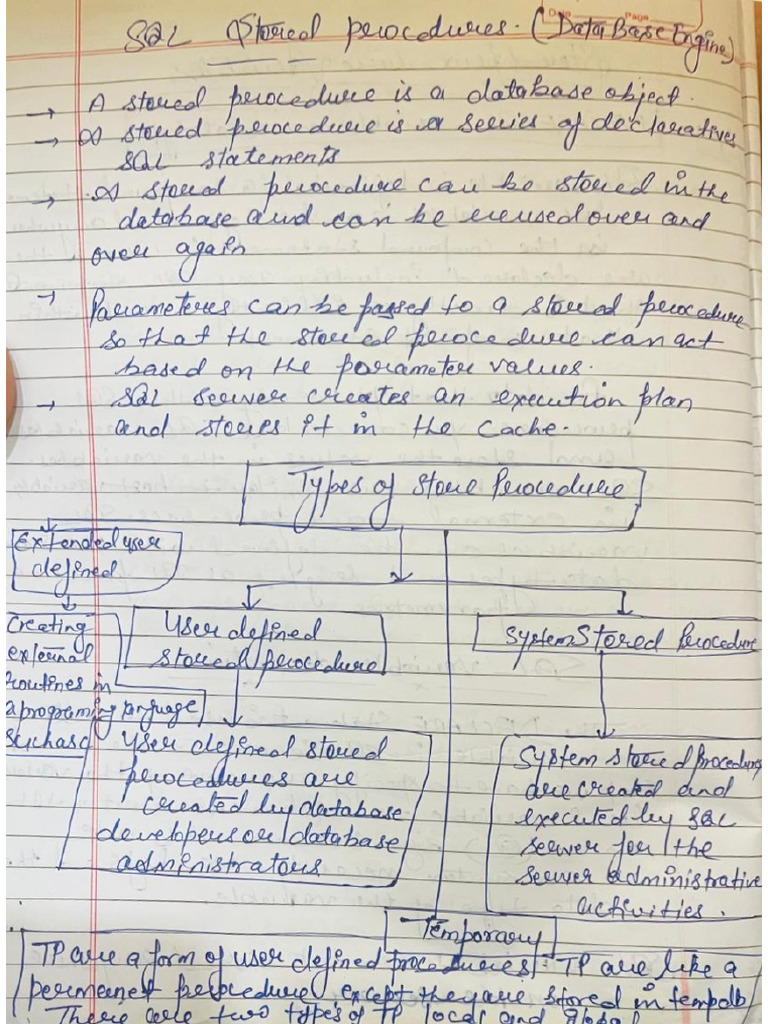 Date Page
SQL Stored procedures. (DataBase Engine)
→ A stored procedure is a database object.
→ A stored procedure is a series of declaratives
SQL statements
→ A stored procedure can be stored in the
database and can be reused over and
over again
→ Parameters can be passed to a stored procedure
so that the stored procedure can act
based on the parameter values.
→ SQL server creates an execution plan
and stores it in the cache.
Types of Store Procedure
Extended user
defined
Creating
external
routines in
a programing language
such as c
User defined
stored procedure
User defined stored
procedures are
created by database
developers or database
administrators
System Stored Procedure
System stored Procedures
are created and
executed by SQL
server for the
server administrative
activities.
Temporary
TP are a form of user defined procedures. TP are like a
permanent procedure except they are stored in tempdb
There are two types of TP local and global